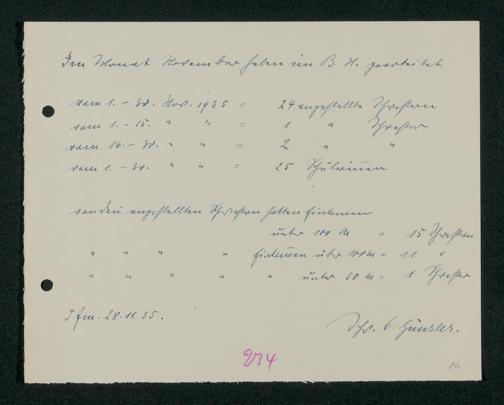 Im Monat November haben im B. H. gearbeitet
vom 1. - 30. Nov. 1935 = 24 angestellte Schwestern
vom 1. - 15. " " = 1 " Schwester
vom 16. - 30. " " = 2 " "
vom 1. - 30. " " = 25 Schülerinnen
von den angestellten Schwestern hatten Einkommen
unter 100 M = 15 Schwestern
" " " " Einkommen über 100 M = 11 "
" " " " " unter 50 M = 1 Schwester
28.11.35.
Schw. E.
234